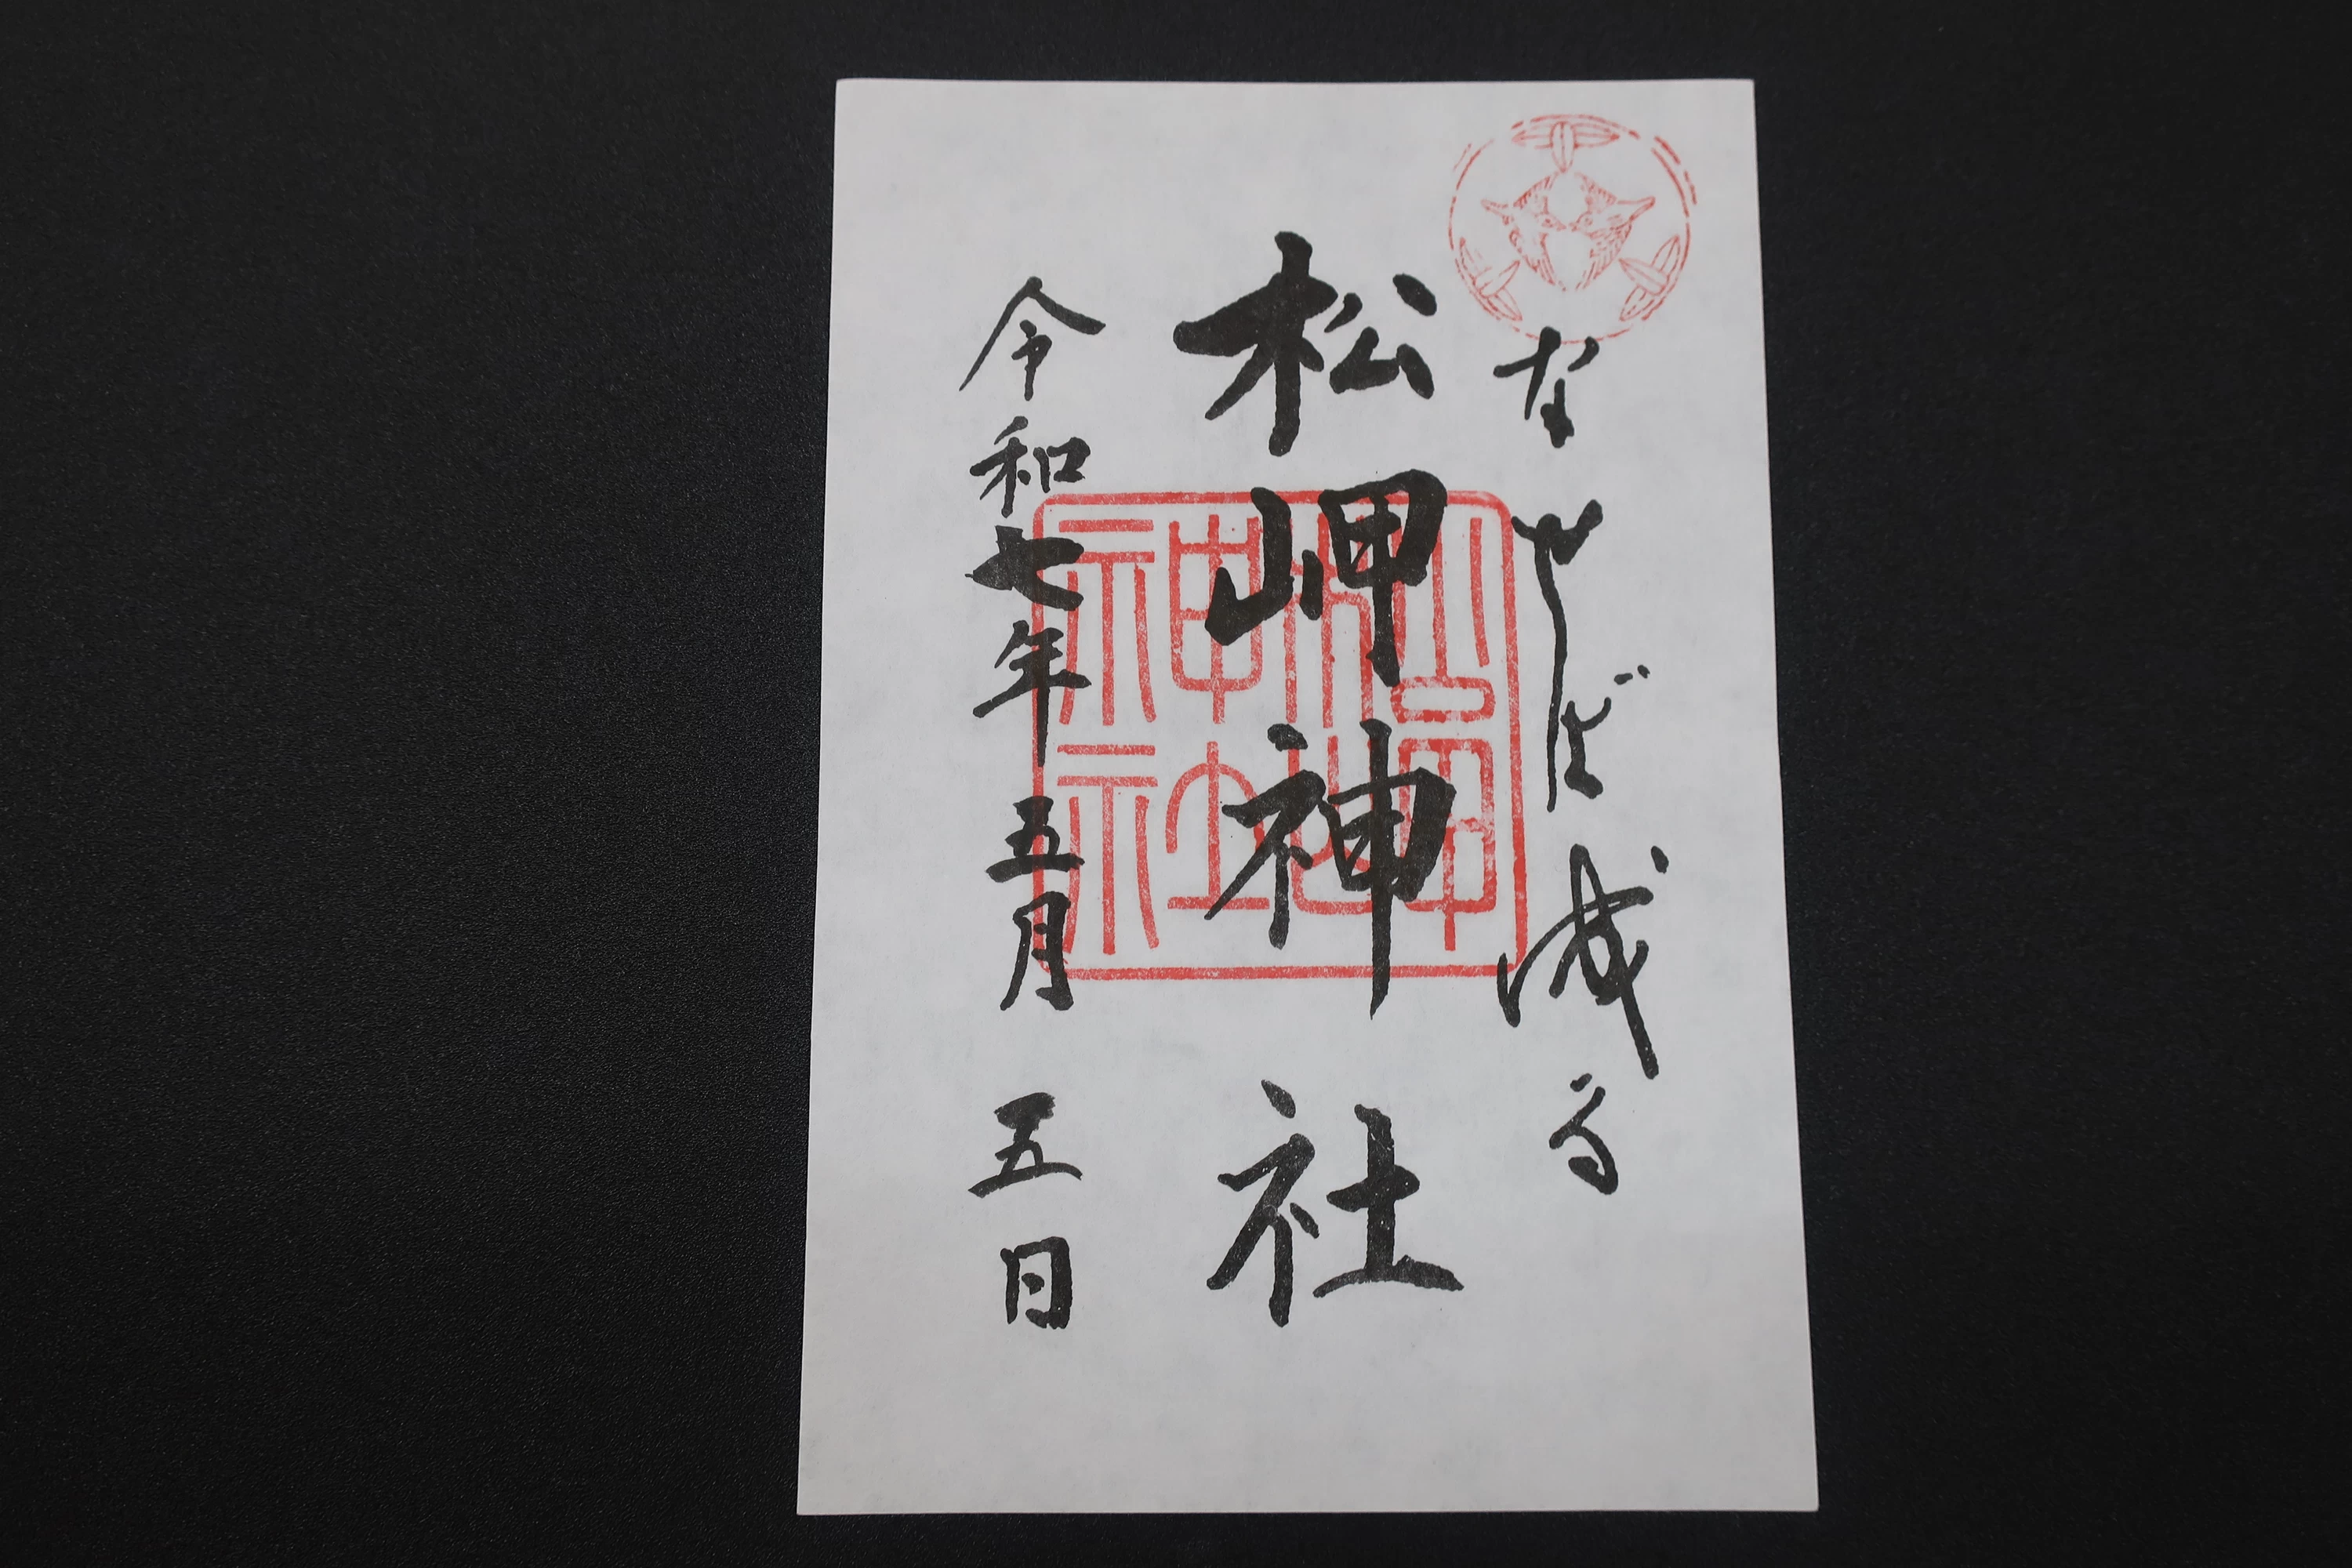 なせば成る
松岬神社
令和七年五月五日